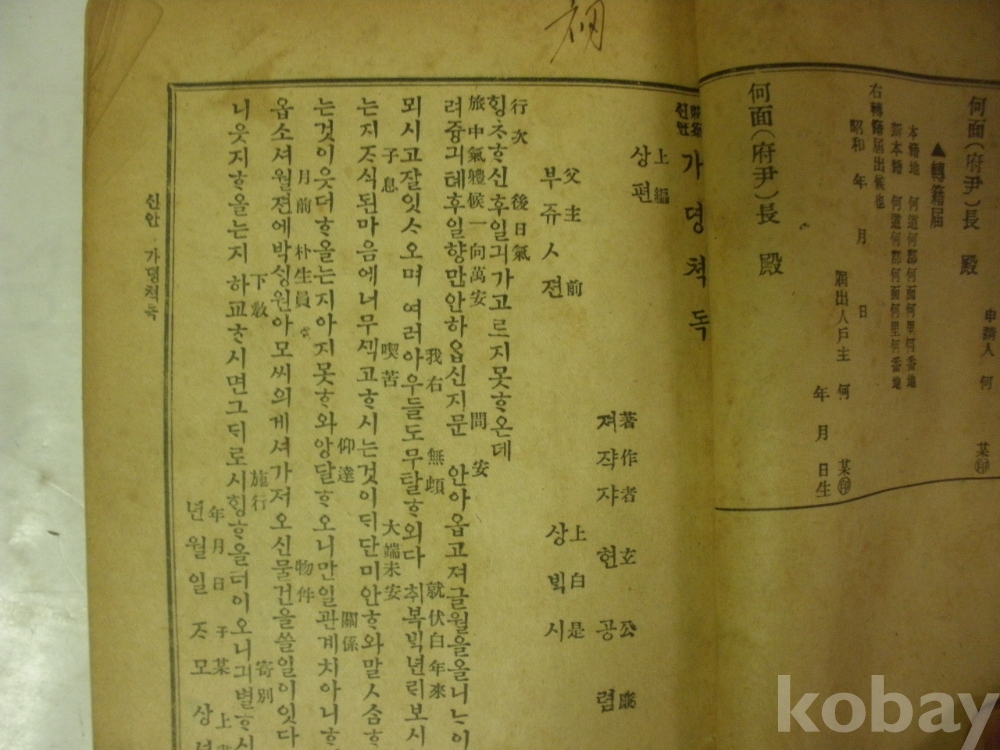 何面(府尹)長 殿
申請人 何 某㊞
▲轉籍届
本籍地 何道何郡何面何里何番地
新本籍 何道何郡何面何里何番地
右轉籍届出候也
昭和 年 月 日
届出人戶主 何 某㊞
年 月 日生
何面(府尹)長 殿
신안 가뎡쳑독
上編
샹편
著作者 玄公廉
져쟉쟈 현공렴
父主前 上白是
부쥬젼 샹ᄇᆡᆨ시
行次 後 日氣
ᄒᆡᆼᄎᆞᄒᆞ신후일긔가고르지못ᄒᆞ온데
旅中氣軆候一向萬安 問安
려즁긔톄후일향만안하옵신지문안아옵고져글월을올니ᄂᆞ이
我右 無頉 就伏白年來
뫼시고잘잇ᄉᆞ오며 여러아우들도무탈ᄒᆞ외다 취복ᄇᆡᆨ년ᄅᆡ보시
子息 喫苦 大端未安
는지ᄌᆞ식된마음에너무ᄭᅵᆨ고ᄒᆞ시는것이ᄃᆡ단미안ᄒᆞ와말ᄉᆞᆷᄒᆞ
仰達 關係
는것이웃더ᄒᆞ올는지아지못ᄒᆞ와앙달ᄒᆞ오니만일관계치아니ᄒᆞ
月前 朴生員 物件
옵소셔월젼에박ᄉᆡᆼ원아모씨의게셔가져오신물건을쓸일이잇다
下敎 施行 寄別
니웃지ᄒᆞ올는지 하교ᄒᆞ시면그ᄃᆡ로시ᄒᆡᆼᄒᆞ올터이오니긔별ᄒᆞ시
年月日 子某 上
년월일 ᄌᆞ모 샹
신안 가뎡쳑독
kobay